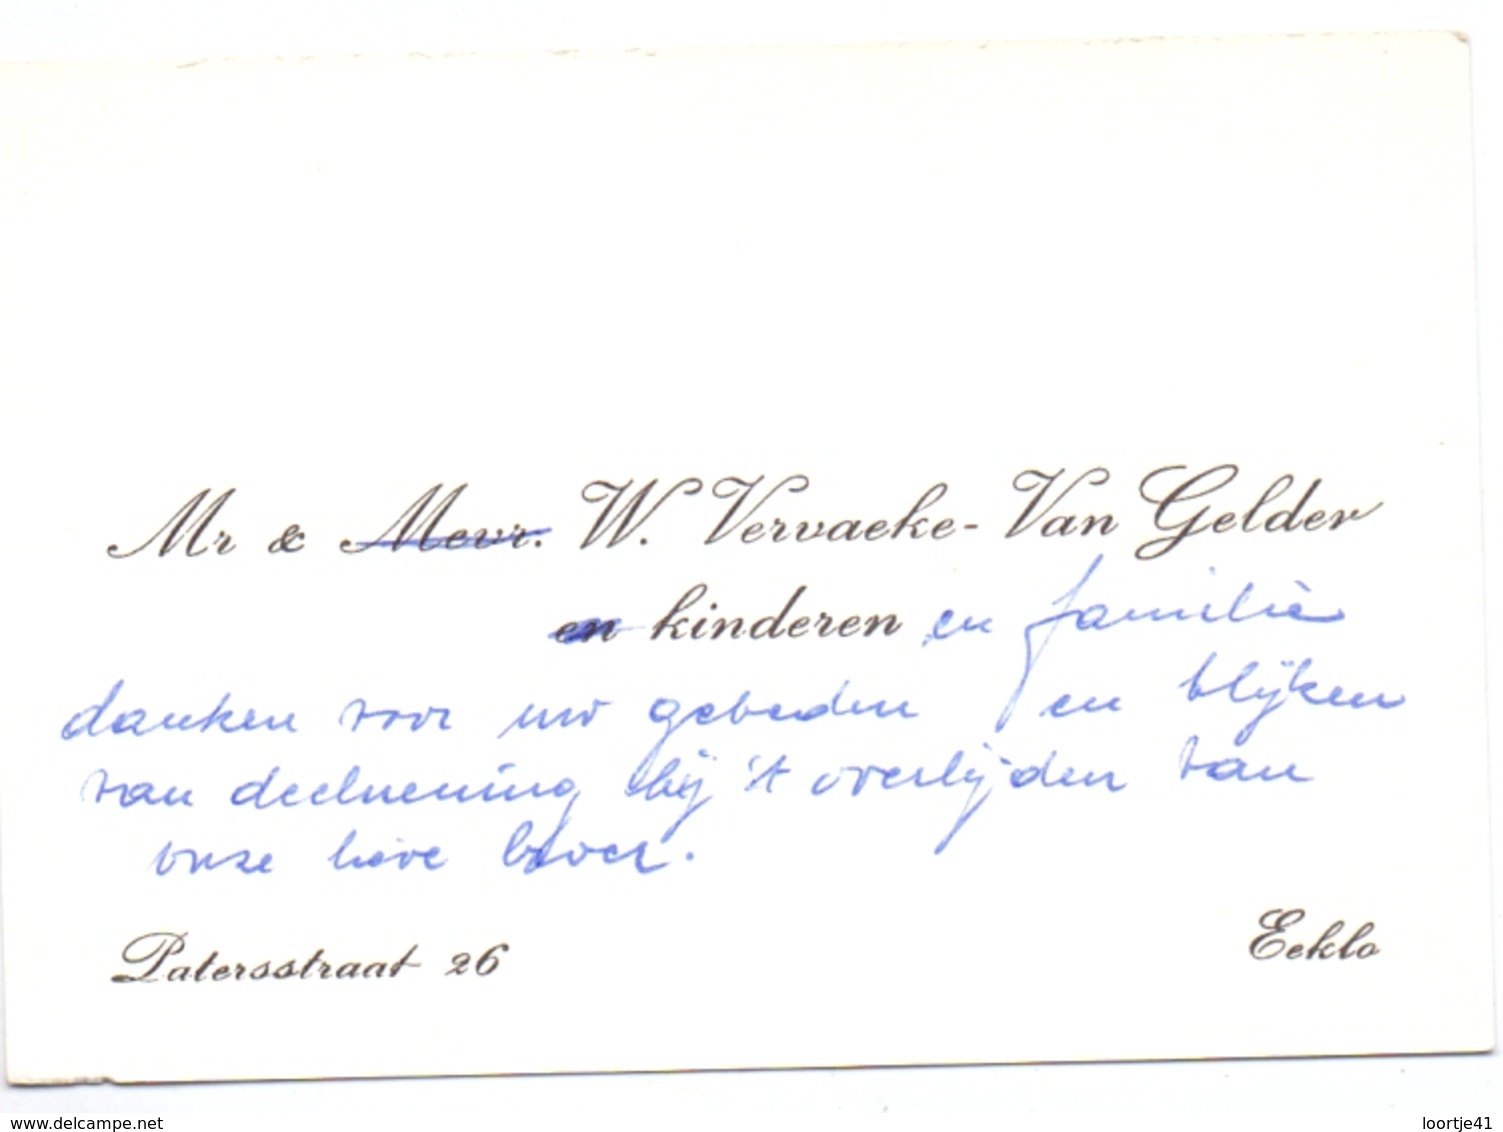 Mr & Mevr. W. Vervaeke - Van Gelder
en kinderen en familie
danken voor uw gebeden en blijken
van deelneming bij 't overlijden van
onze lieve broer.
Patersstraat 26 Eeklo
www.delcampe.net loortje41